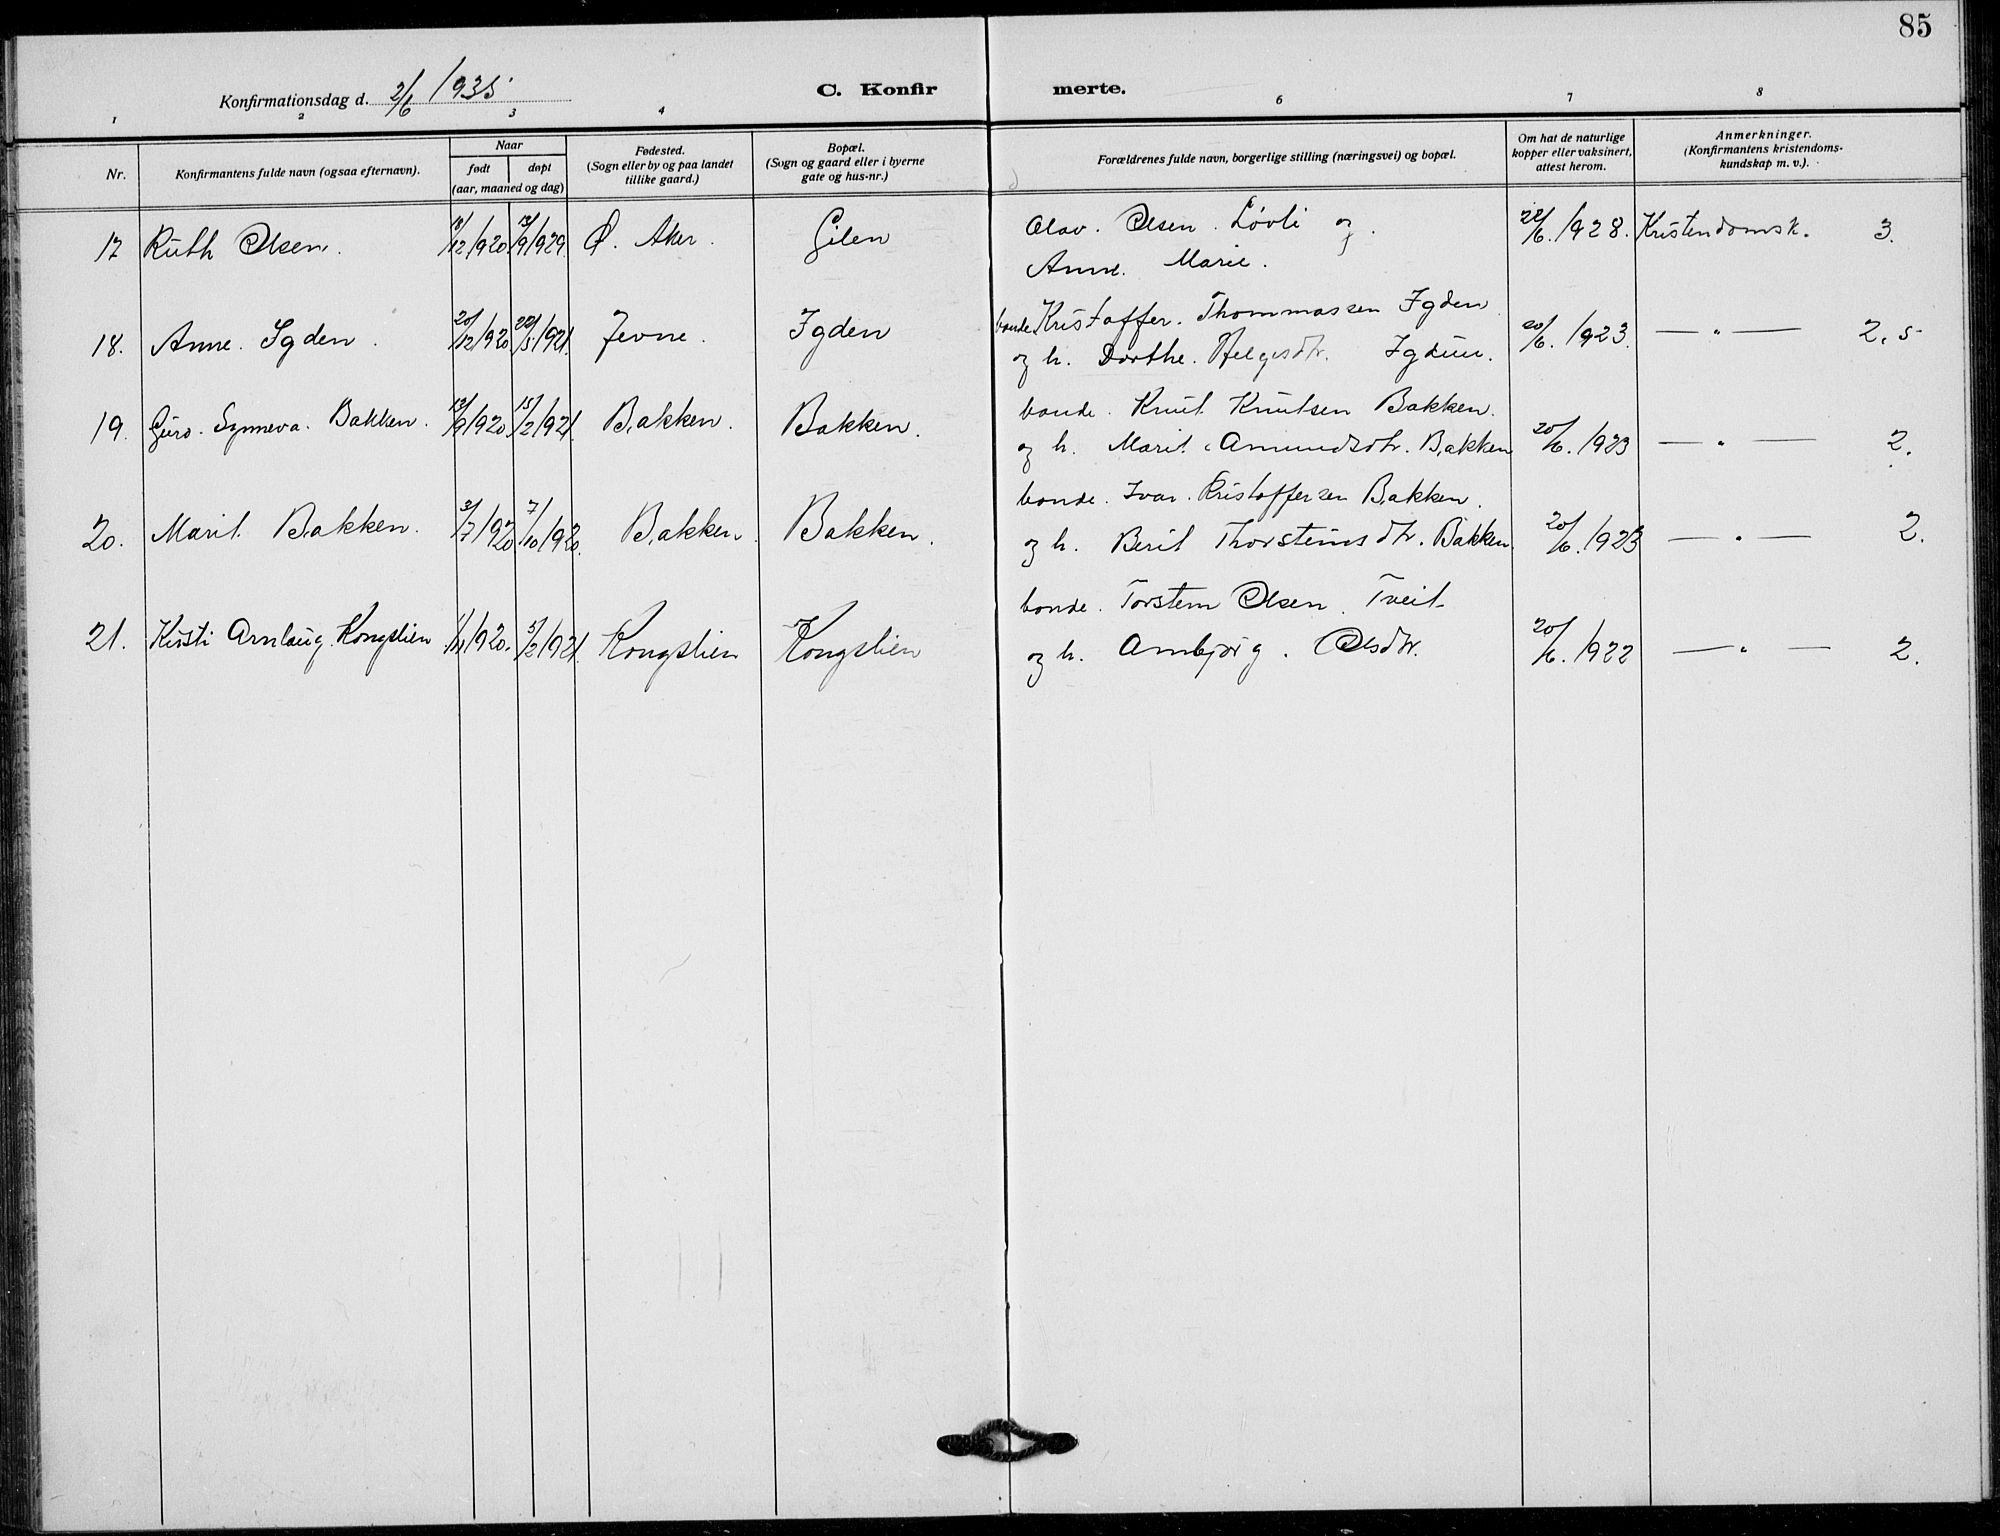 85
Konfirmationsdag d. 2/6 1935
C. Konfirmerte.
1 2 3 4 6 7 8
Nr.
Konfirmantens fulde navn (ogsaa efternavn).
Naar
født døpt
(aar, maaned og dag)
Fødested.
(Sogn eller by og paa landet
tillike gaard.)
Bopæl.
(Sogn og gaard eller i byerne
gate og hus-nr.)
Forældrenes fulde navn, borgerlige stilling (næringsvei) og bopæl.
Om hat de naturlige
kopper eller vaksinert,
attest herom.
Anmerkninger.
(Konfirmantens kristendoms-
kundskap m. v.).
17 Ruth Olsen. /12 1920 /9 1929. Ø. Aker. Gilen Olav. Olsen. Løvli og 22/6. 1928. Kristendomsk. 3.
Anne. Marie.
18. Anne. Igden. 20/12 1920 22/5 1921. Jevne. Igden bonde. Kristoffer. Thommassen Igden 20/6. 1923. — " — 2,5
og h. Dorthe. Helgesdtr. Igden.
19. Guro. Synneva. Bakken. 13/9 1920. 15/2 1921. Bakken. Bakken. bonde. Knut Knutsen Bakken.
og h. Marit. Amundsdtr. Bakken 20/6. 1923 — " — 2.
20. Marit. Bakken. 3/7 1920 7/10 1920. Bakken. Bakken. bonde. Ivar. Kristoffersen Bakken.
og h. Berit Thorsteinsdtr. Bakken. 20/6. 1923 — " — 2.
21. Kirsti Arnlaug. Kongslien 1/11 1920. 5/2 1921. Kongslien Kongslien bonde. Torstein Olsen. Tveit
og h. Arnbjørg. Olsdtr. 20/6. 1922 — " — 2.